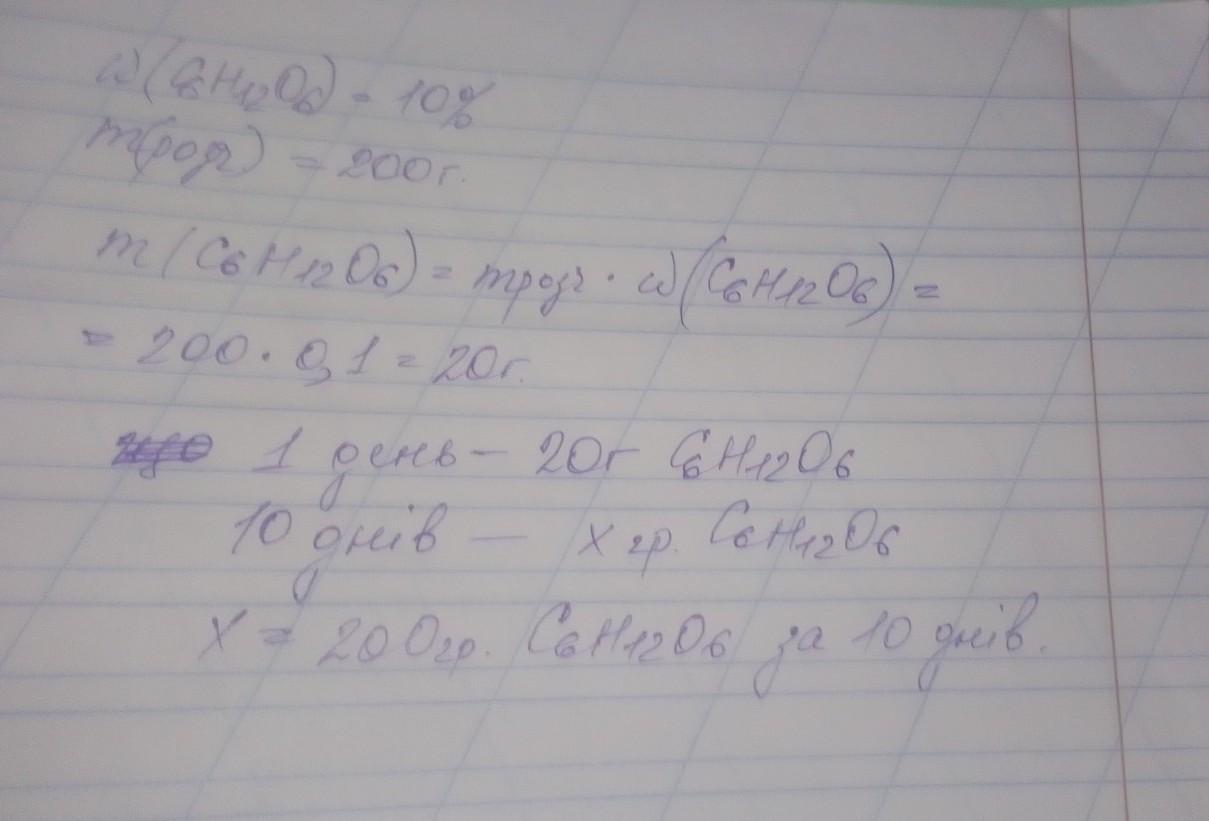 ω(C₆H₁₂O₆) = 10%
m(розч) = 200г.
m(C₆H₁₂O₆) = mрозч · ω(C₆H₁₂O₆) =
= 200 · 0,1 = 20г.
1 день – 20г C₆H₁₂O₆
10 днів — x гр. C₆H₁₂O₆
X = 200гр. C₆H₁₂O₆ за 10 днів.